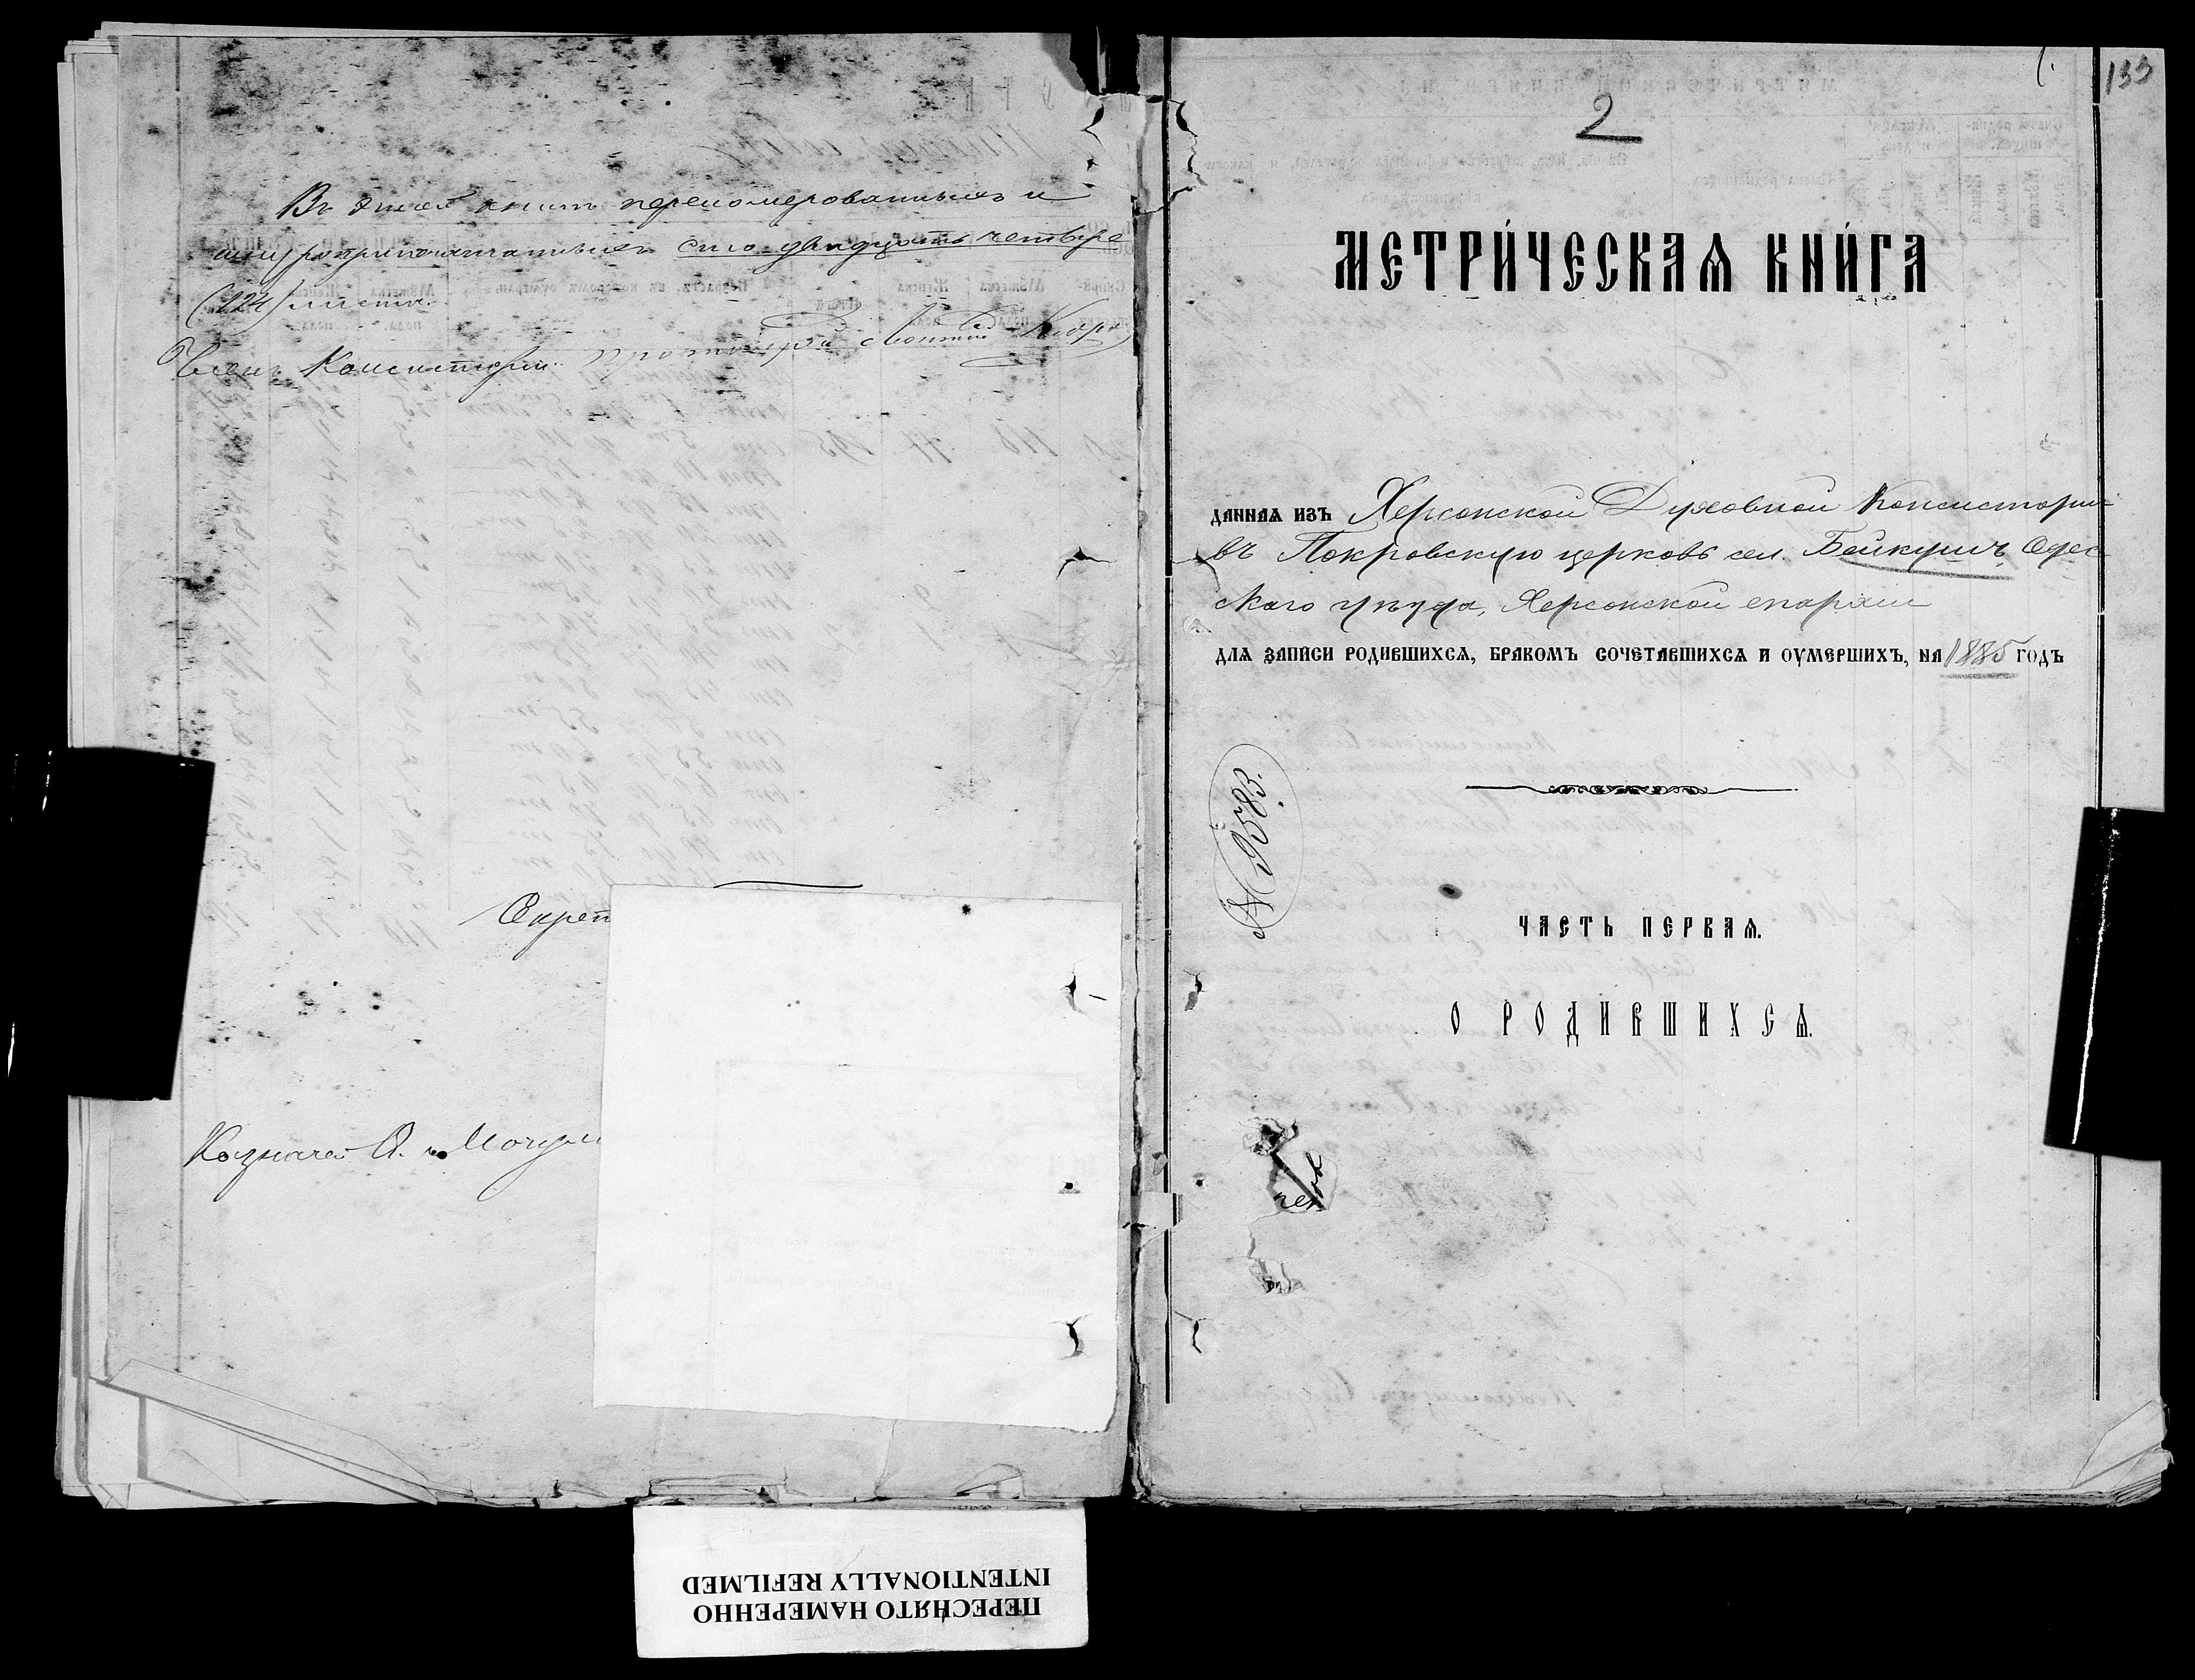 Въ этой книгѣ переномерованныхъ и
шнуроприпечатанныхъ сто двадцать четыре
(124) листа.
Членъ Консисторіи Протоіерей
Секрет
Казначей А.
133
1.
2
МЕТРИ́ЧЕСКАѦ КНИ́ГА
ДАННАѦ ИЗЪ Херсонской Духовной Консисторіи
въ Покровскую церковь сел. Бейкушъ Одес
скаго уѣзда, Херсонской епархіи
ДЛѦ ЗАПИСИ РОДИВШИХСѦ, БРАКОМЪ СОЧЕТАВШИХСѦ И ОУМЕРШИХЪ, НА 1885 ГОДЪ
№ 9583.
ЧАСТЬ ПЕРВАѦ.
О РОДИВШИХСѦ.
ПЕРЕСНЯТО НАМЕРЕННО
INTENTIONALLY REFILMED